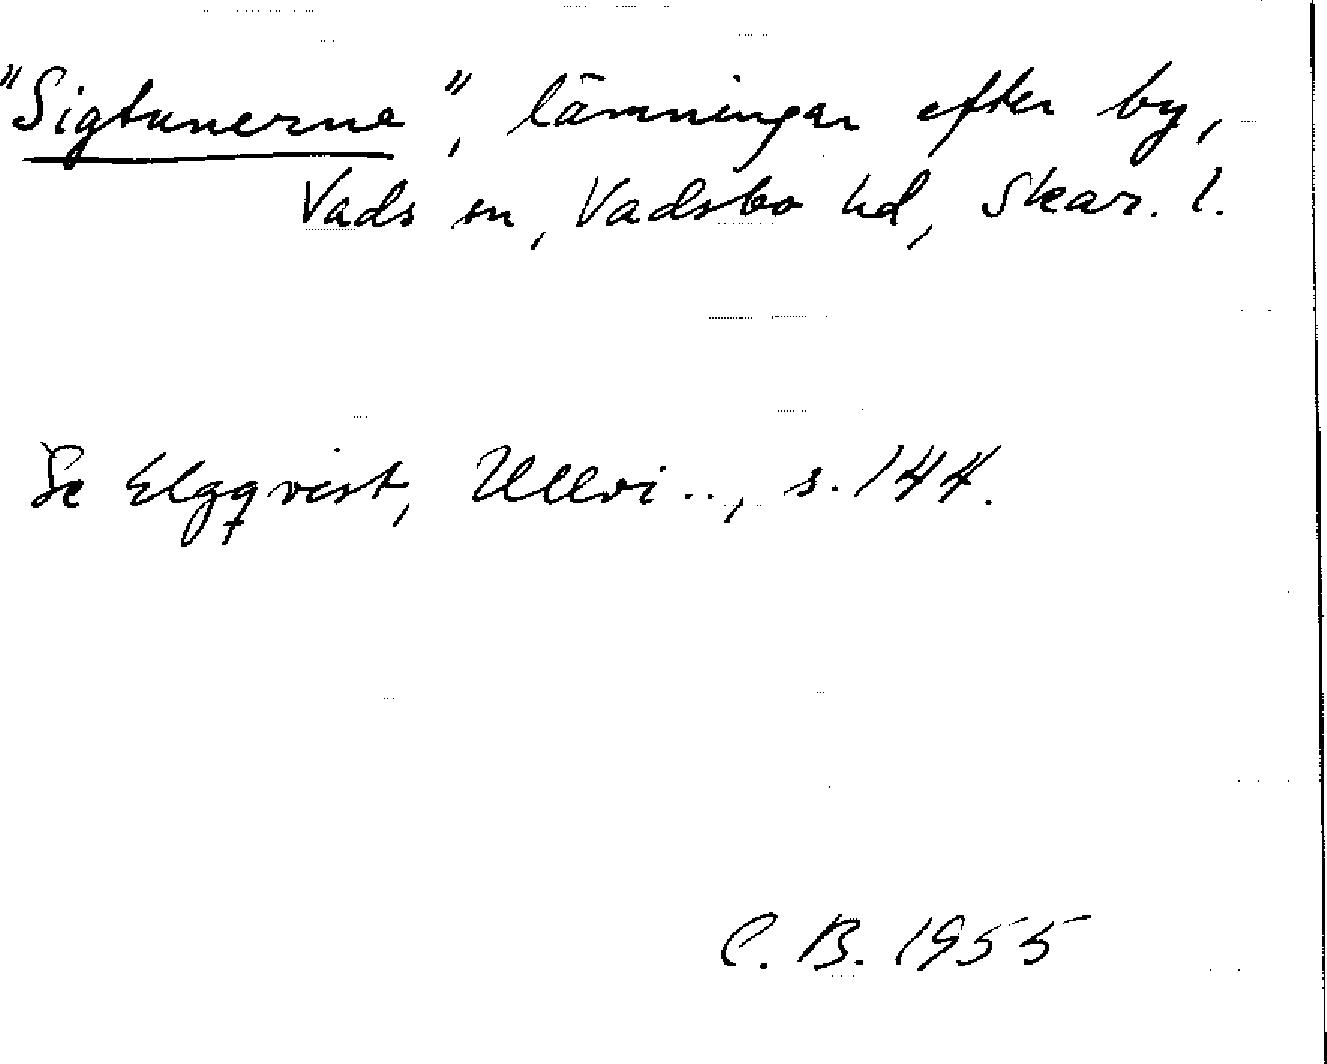 "Sigtunerne", lämningar efter by,
Vads sn, Vadsbo hd, Skar. l.
Se Elgqvist, Ullvi.., s. 144.
C. B. 1955